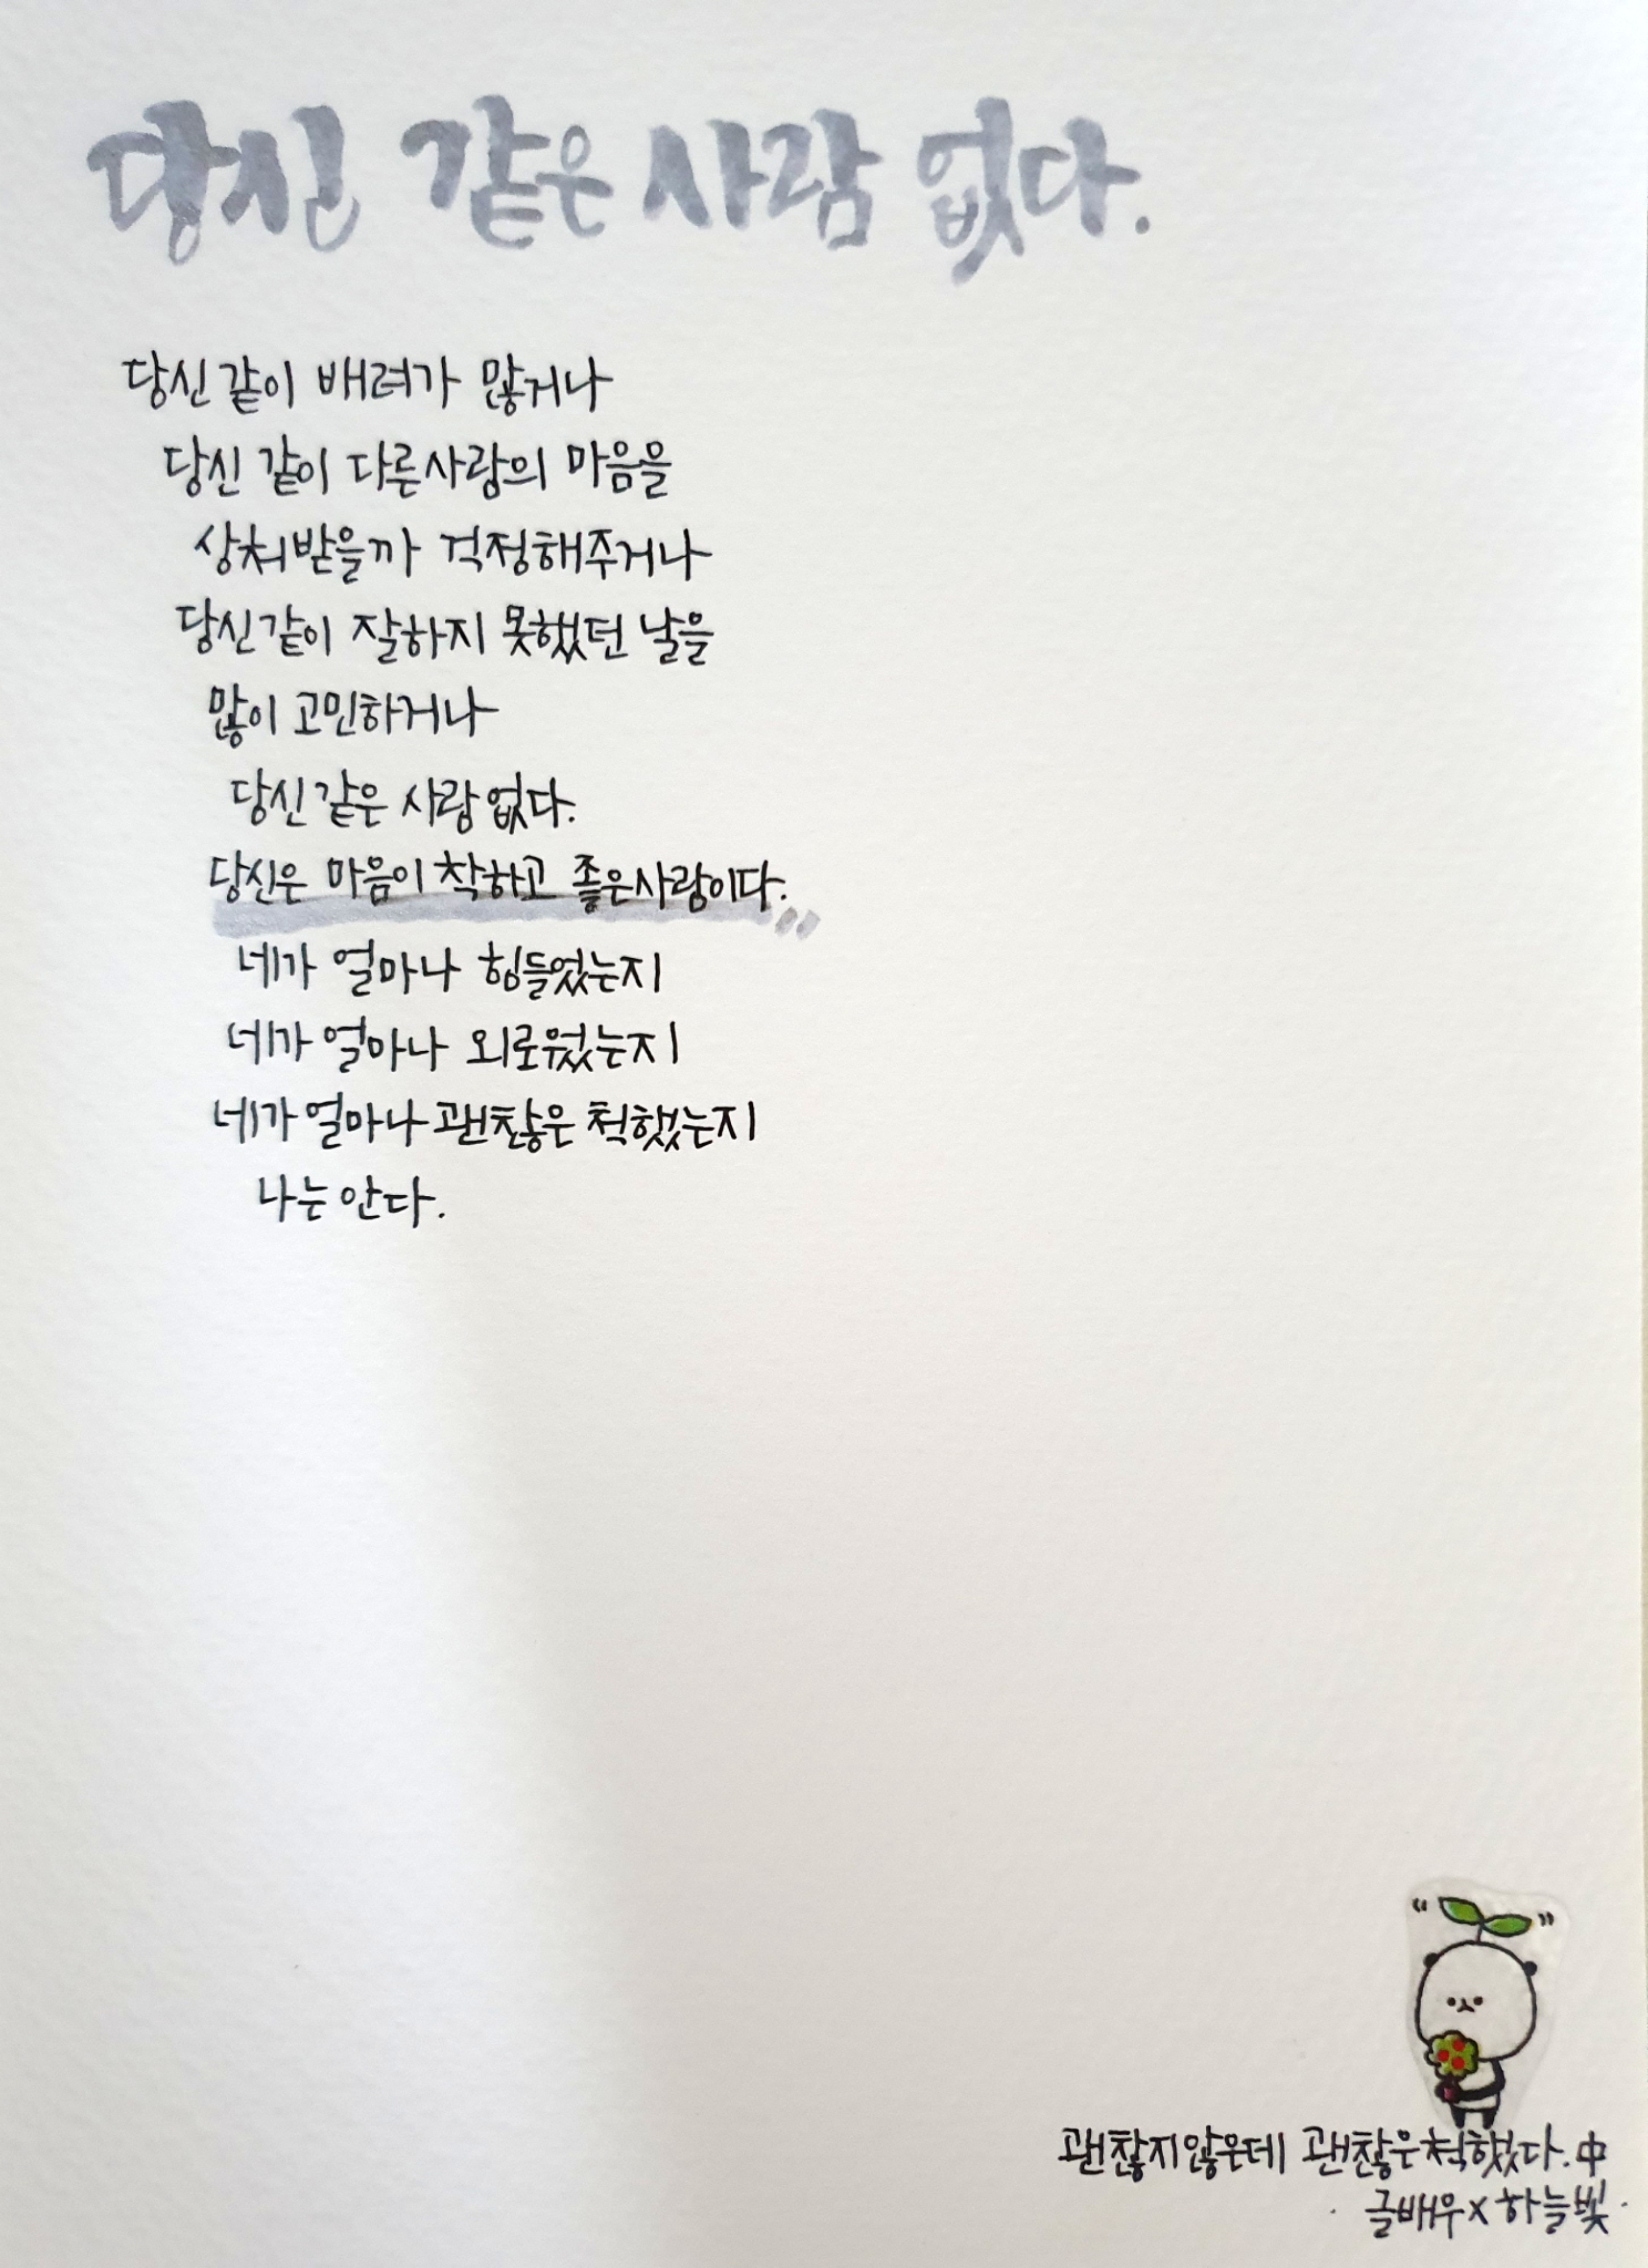 당신 같은 사람 없다.
당신 같이 배려가 많거나
당신 같이 다른사람의 마음을
상처받을까 걱정해주거나
당신같이 잘하지 못했던 날을
많이 고민하거나
당신같은 사람 없다.
당신은 마음이 착하고 좋은사람이다.
네가 얼마나 힘들었는지
네가 얼마나 외로웠는지
네가 얼마나 괜찮은 척했는지
나는 안다.
괜찮지않은데 괜찮은척했다. 中
글배우 x 하늘빛